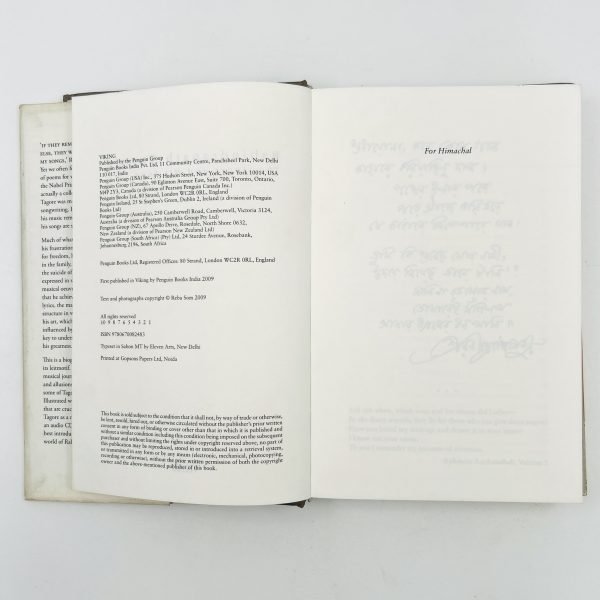 'IF THEY REM
ELSE, THEY W
MY SONGS,'
Yet we often f
of poems for w
the Nobel Priz
actually a coll
Tagore was m
songwriting. I
his music rem
his songs are s
Much of what
his frustration
for freedom, l
in the family,
the suicide of
expressed in s
musical oeuvre
that he achiev
lyrics, the ma
structure in w
his art, which
influenced by
key to unders
his greatness.
This is a biog
its leitmotif.
musical journ
and allusions
some of Tago
Illustrated w
that are cruc
Tagore as a m
an audio CD
best introduc
world of Rab
VIKING
Published by the Penguin Group
Penguin Books India Pvt. Ltd, 11 Community Centre, Panchsheel Park, New Delhi
110 017, India
Penguin Group (USA) Inc., 375 Hudson Street, New York, New York 10014, USA
Penguin Group (Canada), 90 Eglinton Avenue East, Suite 700, Toronto, Ontario,
M4P 2Y3, Canada (a division of Pearson Penguin Canada Inc.)
Penguin Books Ltd, 80 Strand, London WC2R 0RL, England
Penguin Ireland, 25 St Stephen's Green, Dublin 2, Ireland (a division of Penguin
Books Ltd)
Penguin Group (Australia), 250 Camberwell Road, Camberwell, Victoria 3124,
Australia (a division of Pearson Australia Group Pty Ltd)
Penguin Group (NZ), 67 Apollo Drive, Rosedale, North Shore 0632,
New Zealand (a division of Pearson New Zealand Ltd)
Penguin Group (South Africa) (Pty) Ltd, 24 Sturdee Avenue, Rosebank,
Johannesburg 2196, South Africa
Penguin Books Ltd, Registered Offices: 80 Strand, London WC2R 0RL, England
First published in Viking by Penguin Books India 2009
Text and photographs copyright © Reba Som 2009
All rights reserved
10 9 8 7 6 5 4 3 2 1
ISBN 9780670082483
Typeset in Sabon MT by Eleven Arts, New Delhi
Printed at Gopsons Papers Ltd, Noida
This book is sold subject to the condition that it shall not, by way of trade or otherwise,
be lent, resold, hired out, or otherwise circulated without the publisher's prior written
consent in any form of binding or cover other than that in which it is published and
without a similar condition including this condition being imposed on the subsequent
purchaser and without limiting the rights under copyright reserved above, no part of
this publication may be reproduced, stored in or introduced into a retrieval system,
or transmitted in any form or by any means (electronic, mechanical, photocopying,
recording or otherwise), without the prior written permission of both the copyright
owner and the above-mentioned publisher of this book.
For Himachal